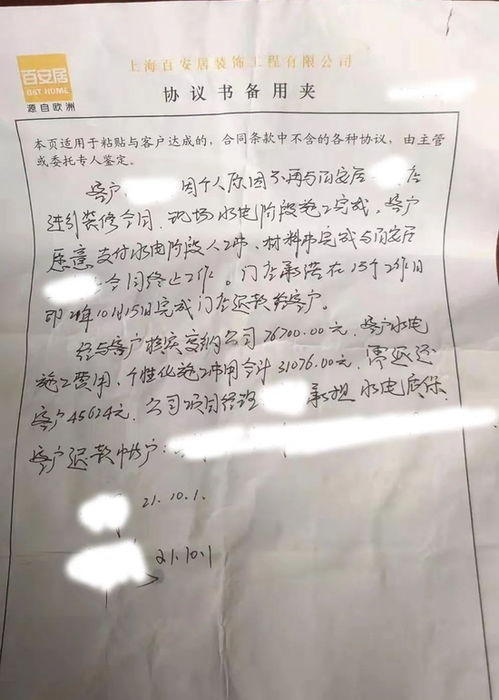 百安居
B&T HOME
源自欧洲
上海百安居装饰工程有限公司
协议书备用夹
本页适用于粘贴与客户达成的，合同条款中不含的各种协议，由主管
或委托专人鉴定。
客户 因个人原因不再与百安居 店
进行装修合同，现场水电阶段施工完成，客户
愿意支付水电阶段人工费、材料费完成与百安居
合同终止工作。门店承诺在15个工作日
即 10月15日完成门店退款给客户。
经与客户核实交纳公司76700.00元，客户水电
施工费用、个性化施工费用合计31076.00元，需退还
客户45624元，公司项目经理 承担水电质保
客户退款帐户：
21.10.1.
21.10.1